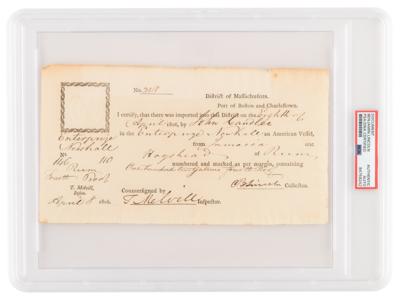 No. 328
District of Massachusetts.
Port of Boston and Charlestown.
I certify, that there was imported into this District on the eighth of
April 1806, by John Candler
in the Enterprize Newhall an American Vessel,
from Jamaica one
Hogshead of Rum,
numbered and marked as per margin, containing
One hundred two Gallons fourth Proof
B Lincoln Collector.
Countersigned by
T. Melvill Inspector.
Enterprize
Newhall
No.
166 110
Rum
fourth Proof
T. Melvill,
Inspec.
April 8 1806.
DOCUMENT
BENJAMIN LINCOLN
AUTHENTIC
AUTO